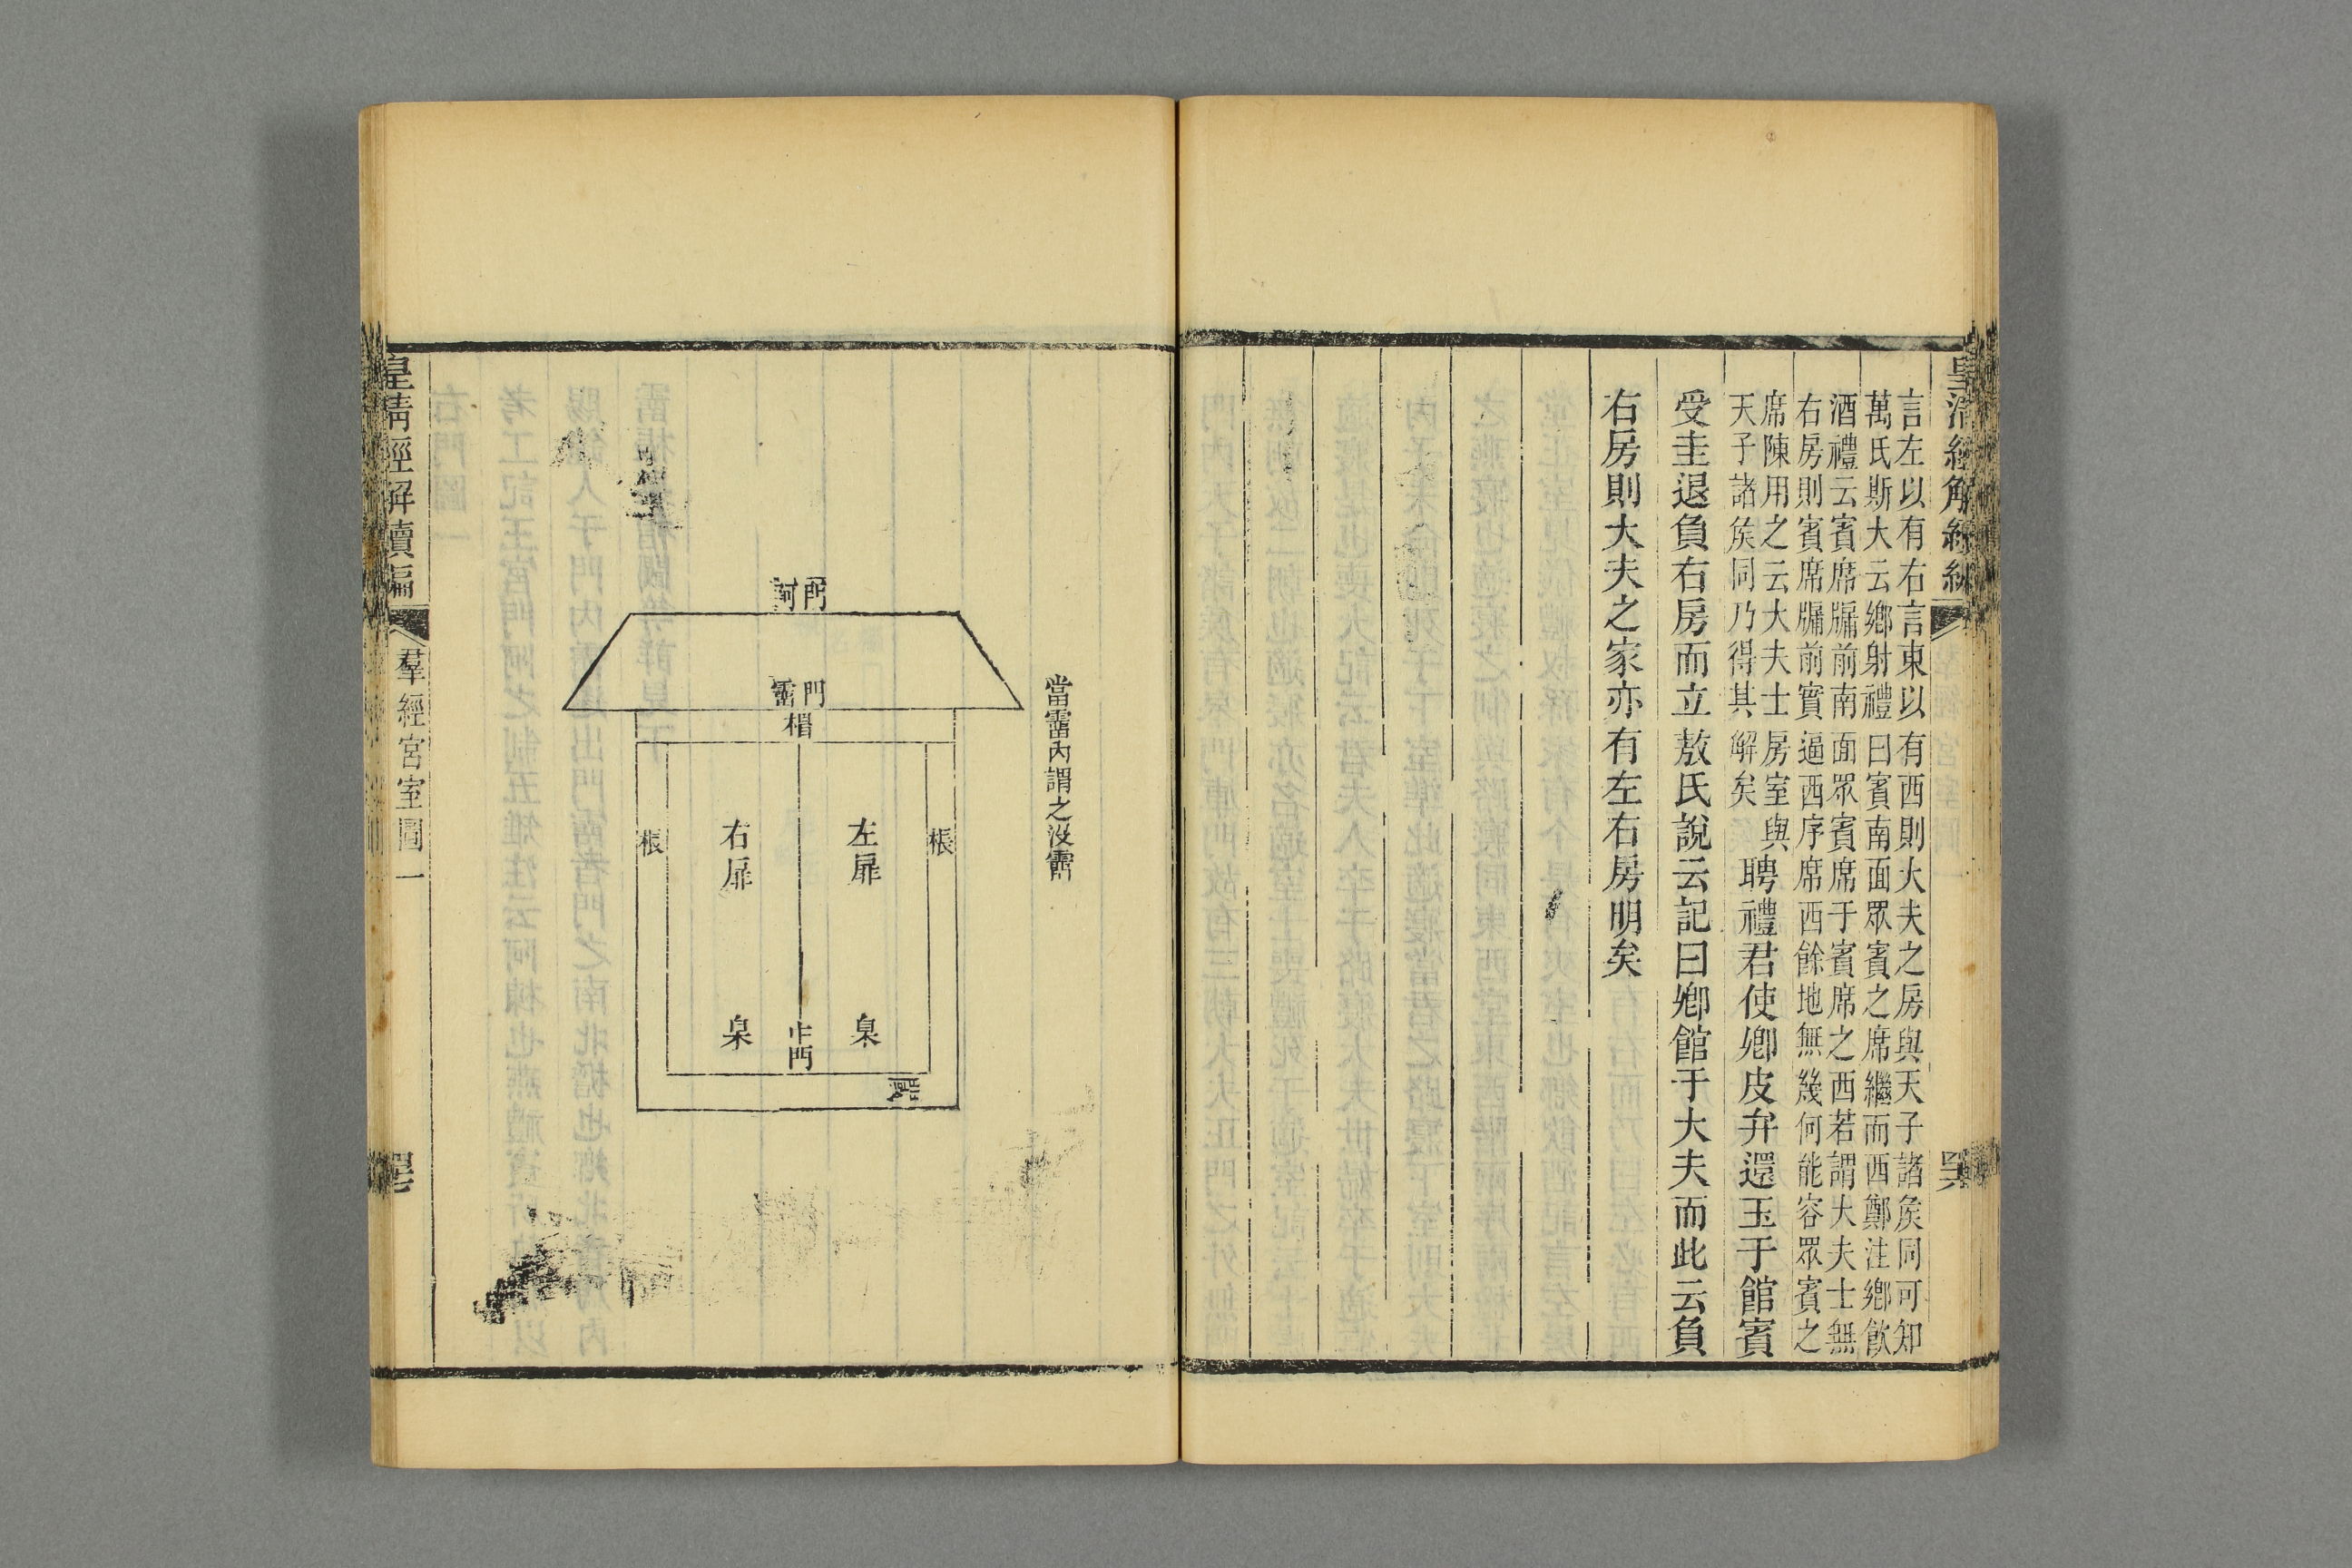 言左以有右言東以有西則大夫之房與天子諸矦同可知
萬氏斯大云鄉射禮曰賓南面眾賓之席繼而西鄭注鄉飲
酒禮云賓席牖前南面眾賓席于賓席之西若謂大夫士無
右房則賓席牖前實逼西序席西餘地無幾何能容眾賓之
席陳用之云大夫士房室與
天子諸矦同乃得其解矣
聘禮君使卿皮弁還玉于館賓
受圭退負右房而立敖氏說云記曰卿館于大夫而此云負
右房則大夫之家亦有左右房明矣
當霤內謂之沒霤
門阿
門霤
楣
棖
左扉
右扉
棖
臬
中門
臬
皇清經解續編
羣經宮室圖一